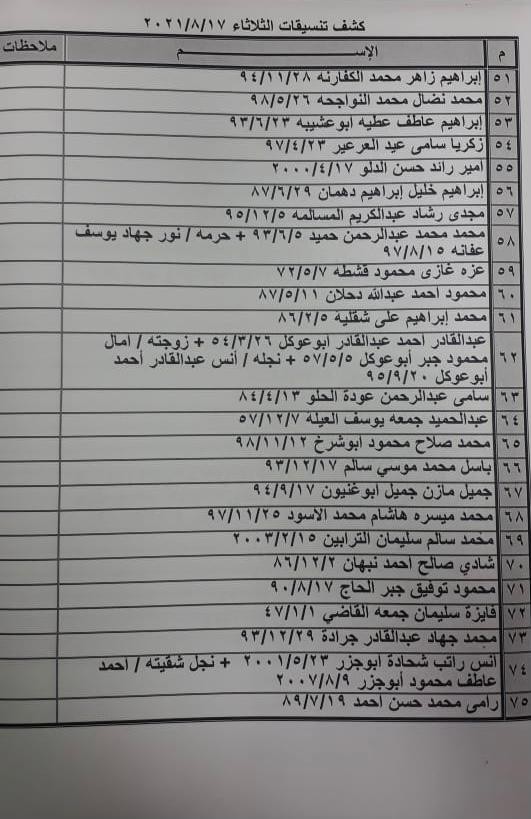 كشف تنسيقات الثلاثاء ٢٠٢١/٨/١٧
م الإســـــــــم ملاحظات
٥١ إبراهيم زاهر محمد الكفارنه ٩٤/١١/٢٨
٥٢ محمد نضال محمد النواجحه ٩٨/٥/٢٦
٥٣ إبراهيم عاطف عطيه ابوعشيبه ٩٣/٦/٢٣
٥٤ زكريا سامى عيد العرعير ٩٧/٤/٢٣
٥٥ امير رائد حسن الدلو ٢٠٠٠/٤/١٧
٥٦ إبراهيم خليل إبراهيم دهمان ٨٧/٦/٢٩
٥٧ مجدى رشاد عبدالكريم المسالمه ٩٥/١٢/٥
٥٨ محمد محمد عبدالرحمن حميد ٩٣/٦/٥ + حرمه / نور جهاد يوسف
عفانه ٩٧/٨/١٥
٥٩ عزه غازى محمود قشطه ٧٢/٥/٧
٦٠ محمود احمد عبدالله دحلان ٨٧/٥/١١
٦١ محمد إبراهيم على شقلية ٨٦/٢/٥
٦٢ عبدالقادر احمد عبدالقادر ابوعوكل ٥٤/٣/٢٦ + زوجته / امال
محمود جبر أبوعوكل ٥٧/٥/٥ + نجله / أنس عبدالقادر أحمد
أبوعوكل ٩٥/٩/٢٠
٦٣ سامى عبدالرحمن عودة الحلو ٨٤/٤/١٣
٦٤ عبدالحميد جمعه يوسف العيله ٥٧/١٢/٧
٦٥ محمد صلاح محمود ابوشرخ ٩٨/١١/١٢
٦٦ باسل محمد موسي سالم ٩٣/١٢/١٧
٦٧ جميل مازن جميل ابوغنيون ٩٤/٩/١٧
٦٨ محمد ميسره هاشم محمد الاسود ٩٧/١١/٢٥
٦٩ محمد سالم سليمان الترابين ٢٠٠٣/٢/١٥
٧٠ شادي صالح احمد نبهان ٨٦/١٢/٢
٧١ محمود توفيق جبر الحاج ٩٠/٨/١٧
٧٢ فايزة سليمان جمعه القاضي ٤٧/١/١
٧٣ محمد جهاد عبدالقادر جرادة ٩٣/١٢/٢٩
٧٤ انس راتب شحادة ابوجزر ٢٠٠١/٥/٢٣ + نجل شقيته / احمد
عاطف محمود أبوجزر ٢٠٠٧/٨/٩
٧٥ رامى محمد حسن احمد ٨٩/٧/١٩